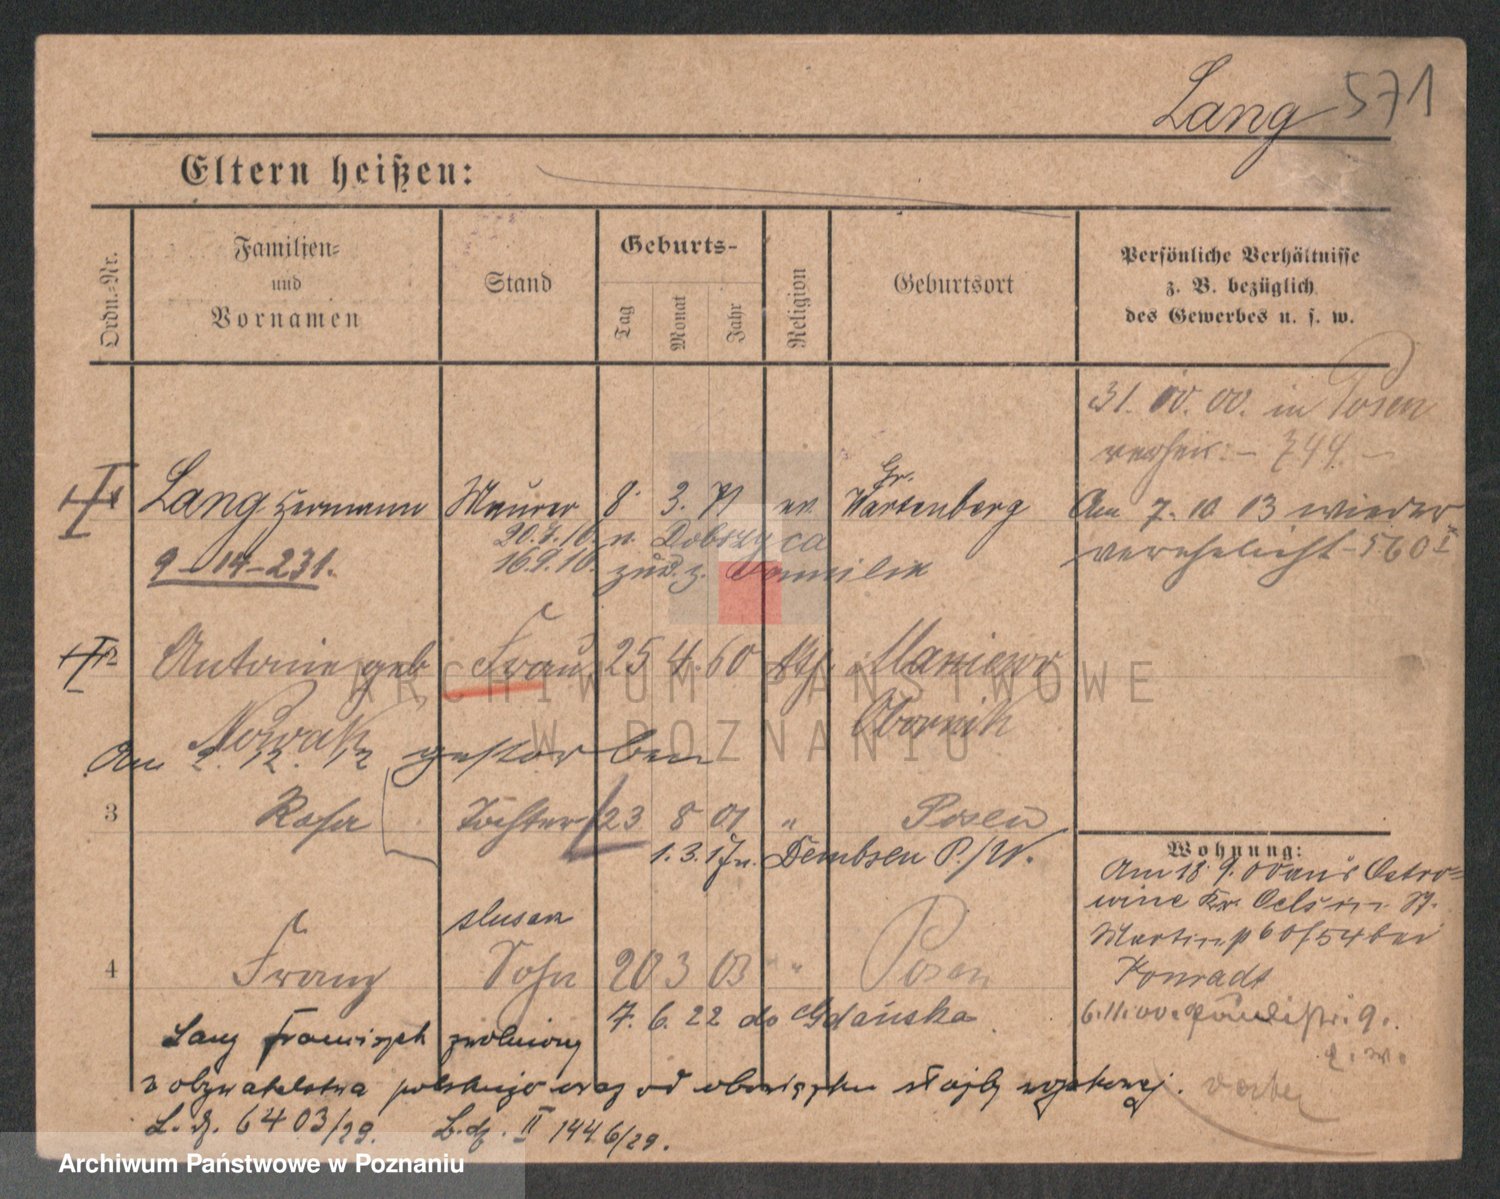 Lang 571
Eltern heißen:
Ordn.-Nr.
Familien-
und
Vornamen
Stand
Geburts-
Tag
Monat
Jahr
Religion
Geburtsort
Persönliche Verhältnisse
z. B. bezüglich
des Gewerbes u. s. w.
31. 00. in Posen
744.
Lang Hermann Maurer 8. 3. 71 ev. Gr. Wartenberg
Am 7. 10 03 wieder
verehelicht - 560 I
20.7.10. n. Dobrzyca
9-14-231. 16.9.10. zur. z. Familie
2 Antonie geb Frau 25 4. 60 kth.
Nowak Obornik
Am 2. 12. 12 gestorben
3 Rosa Tochter 23 8 01 " Posen
1.3.17 n. Dembsen P./W.
Wohnung:
Am 18. 9. 00 aus Ostro-
wine Kr. Oels in St.
Martin 60/54 bei
Konradt
6.11.00. 9.
slusarz
4 Franz Sohn 20 3 03 " Posen
7. 6. 22 do Gdańska
Lang Franciszek zwolniony
z obywatelstwa polskiego oraz od obowiązku służby wojskowej.
L. dz. 6403/29. L. dz. II 1446/29.
ARCHIWUM PAŃSTWOWE
W POZNANIU
Archiwum Państwowe w Poznaniu